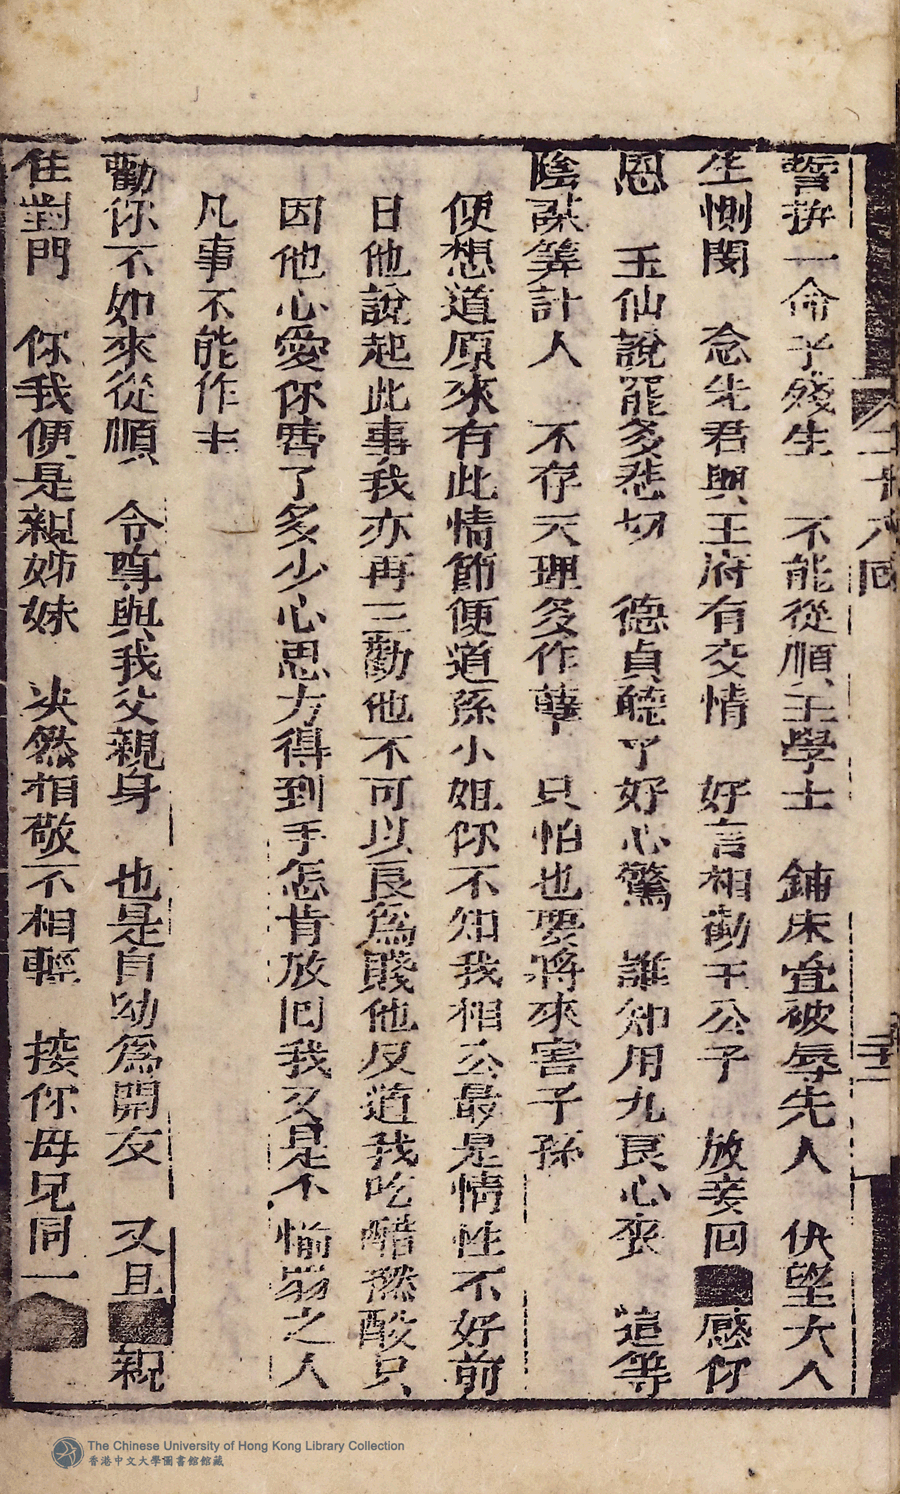 誓拚一命予殘生　不能從順王學士　鋪床宜被辱先人　伏望大人
生惻閔　念先君與王府有交情　好言相勸王公子　放妾回■感你
恩　玉仙說罷多悲切　德貞聽了好心驚　誰知用九良心丧　這等
陰謀筭計人　不存天理多作孽　只怕也要將來害子孫
便想道原來有此情節便道孫小姐你不知我相公最是情性不好前
日他說起此事我亦再三勸他不可以良爲賤他反道我吃醋撚酸只
因他心愛你費了多少心思方得到手怎肯放回我又是不愉弱之人
凡事不能作主
勸你不如來從順　令尊與我父親身　也是自幼爲朋友　又且■親
住對門　你我便是親姊妹　决然相敬不相輕　接你母兄同一■
二十八回
The Chinese University of Hong Kong Library Collection
香港中文大學圖書館館藏